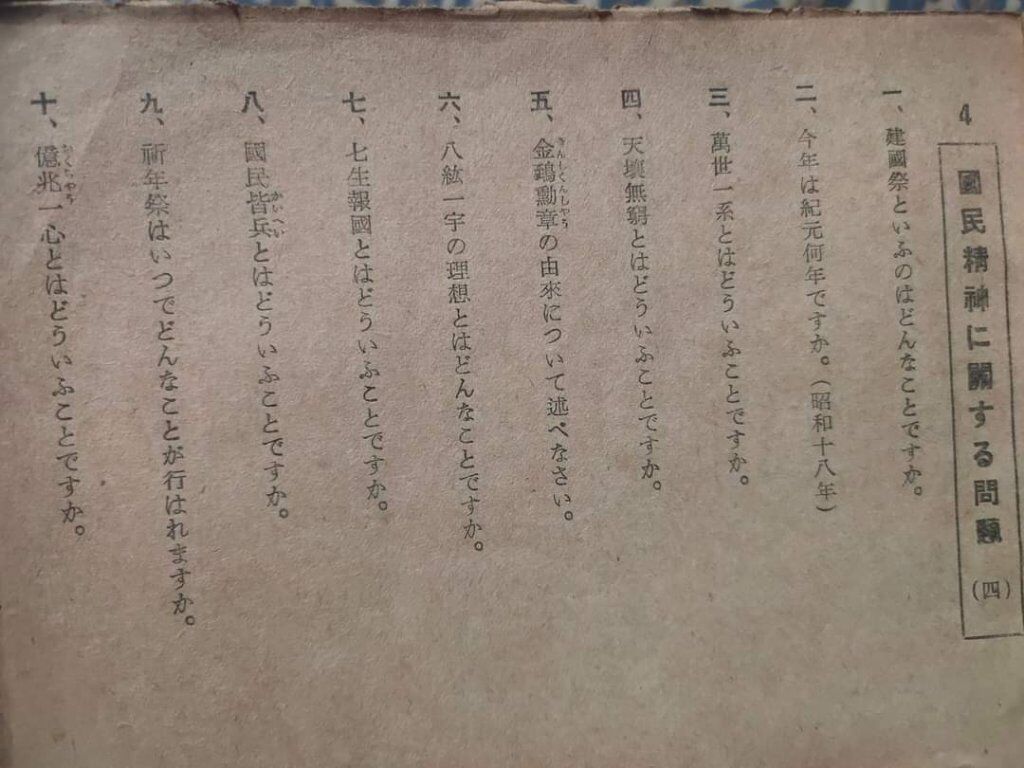 4
國民精神に關する問題(四)
一、建國祭といふのはどんなことですか。
二、今年は紀元何年ですか。(昭和十八年)
三、萬世一系とはどういふことですか。
四、天壤無窮とはどういふことですか。
五、金鵄勳章の由來について述べなさい。
きんしくんしやう
六、八紘一宇の理想とはどんなことですか。
七、七生報國とはどういふことですか。
八、國民皆兵とはどういふことですか。
かいへい
九、祈年祭はいつでどんなことが行はれますか。
十、億兆一心とはどういふことですか。
おくちやう